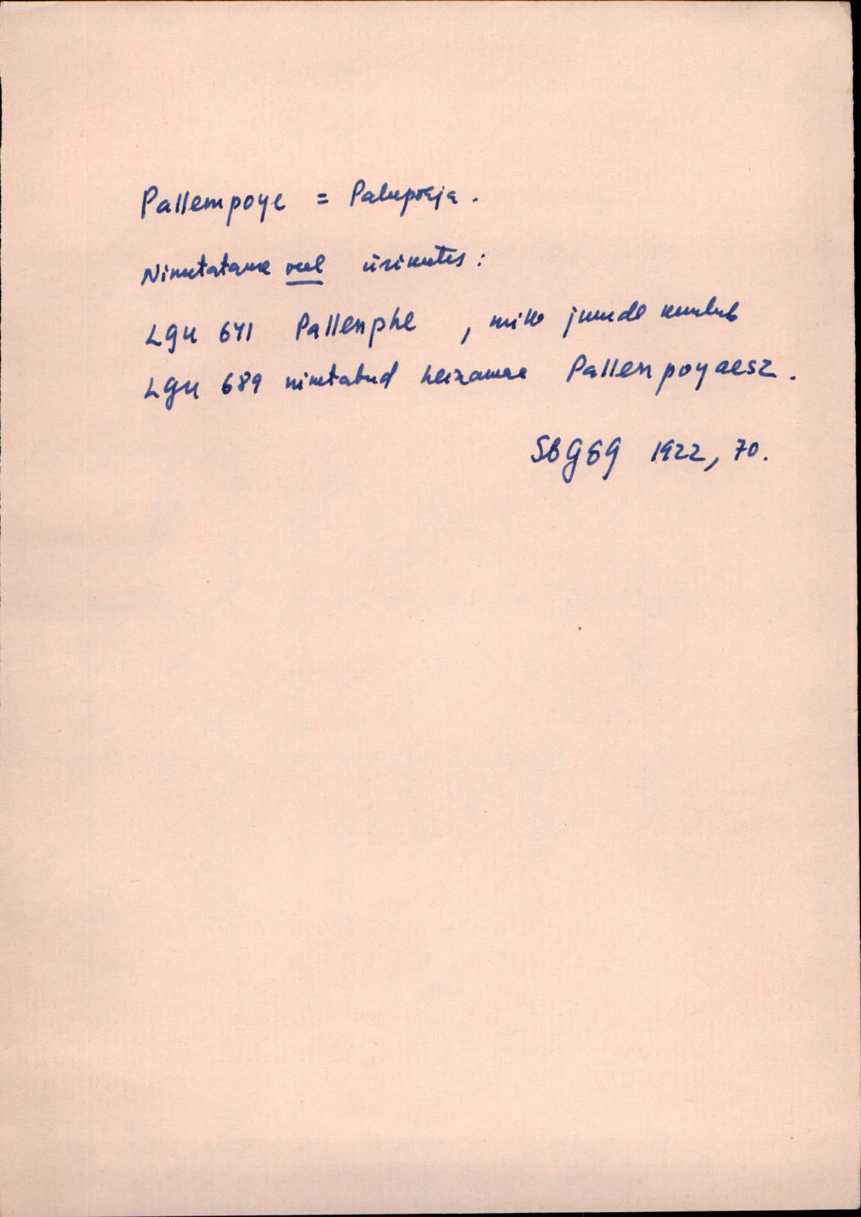 Pallempoye = Palupõhja.
Nimetatame veel ürikutes:
LGU 641 Pallenphe, mille juurde kuulub
LGU 689 nimetatud heinamaa Pallenpoyaesz.
SBGEG 1922, 70.